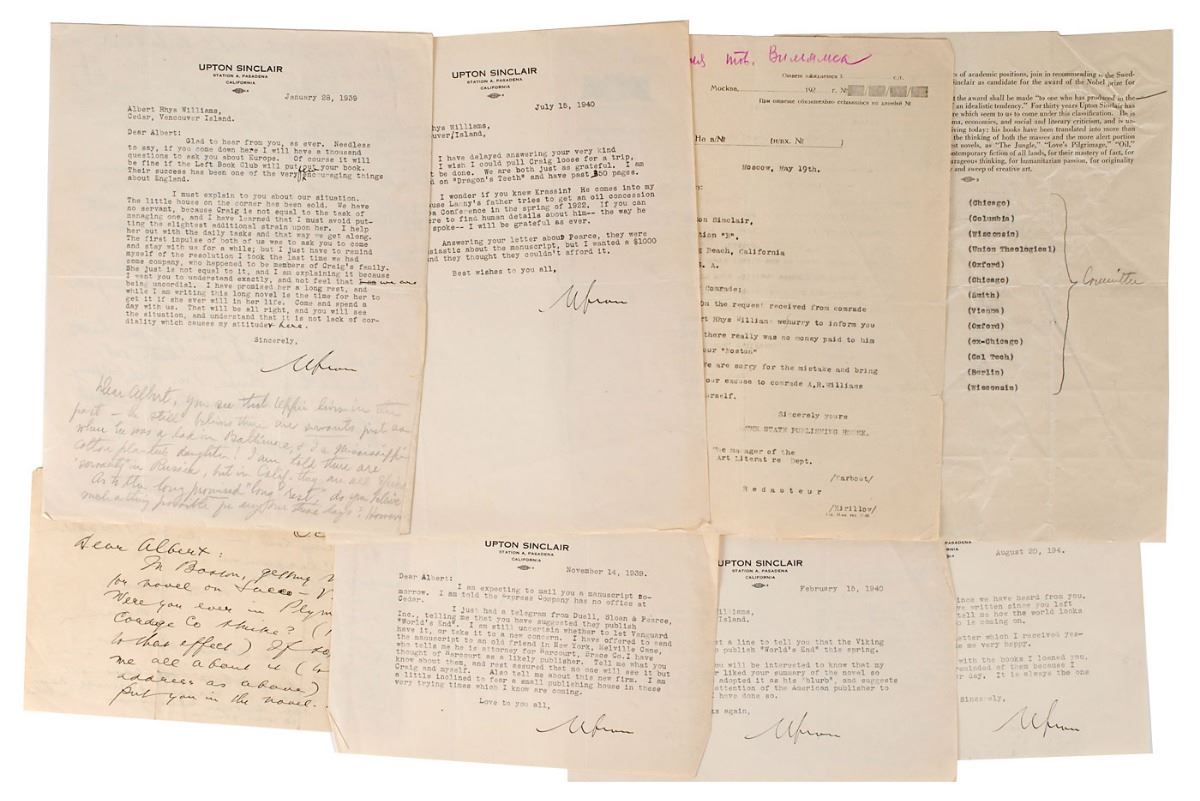 UPTON SINCLAIR
STATION A, PASADENA
CALIFORNIA
January 28, 1939
Albert Rhys Williams,
Cedar, Vancouver Island.
Dear Albert:
Glad to hear from you, as ever. Needless
to say, if you come down here I will have a thousand
questions to ask you about Europe. Of course it will
be fine if the Left Book Club will put out your book.
Their success has been one of the very encouraging things
about England.
I must explain to you about our situation.
The little house on the corner has been sold. We have
no servant, because Craig is not equal to the task of
managing one, and I have learned that I must avoid put-
ting the slightest additional strain upon her. I help
her out with the daily tasks and that way we get along.
The first impulse of both of us was to ask you to come
and stay with us for a while; but I just have to remind
myself of the resolution I took the last time we had
some company, who happened to be members of Craig's family.
She just is not equal to it, and I am explaining it because
I want you to understand exactly, and not feel that we are
being uncordial. I have promised her a long rest, and
while I am writing this long novel is the time for her to
get it if she ever will in her life. Come and spend a
day with us. That will be all right, and you will see
the situation, and understand that it is not lack of cor-
diality which causes my attitude here.
Sincerely,
Upton
Dear Albert, you see that Uppie lives in the
past - he still believes there are servants just as
when he was a lad in Baltimore, & I a Mississippi
cotton planter's daughter! I am told there are
servants in Russia, but in Calif. they are all
As to the long promised "long rest", do you believe
possible in these days? However
UPTON SINCLAIR
STATION A, PASADENA
CALIFORNIA
July 15, 1940
hys Williams,
uver Island,
I have delayed answering your very kind
I wish I could pull Craig loose for a trip,
t be done. We are both just as grateful. I am
d on "Dragon's Teeth" and have past 350 pages.
I wonder if you knew Krassin? He comes into my
use Lanny's father tries to get an oil concession
a Conference in the spring of 1922. If you can
re to find human details about him-- the way he
spoke-- I will be grateful as ever.
Answering your letter about Pearce, they were
siastic about the manuscript, but I wanted a $1000
nd they thought they couldn't afford it.
Best wishes to you all,
Upton
тов. Вильямса
Москва, 192 г. №
При ответе обязательно ссылаться на данный №
На в/№ (вход. № )
Moscow, May 19th.
on Sinclair,
tion "B".
g Beach, California
. A.
Comrade:
On the request received from comrade
rt Rhys Williams wehurry to inform you
there really was no money paid to him
our "Boston"
We are sorry for the mistake and bring
our excuse to comrade A.R.Williams
urself.
Sincerely yours
THE STATE PUBLISHING HOUSE.
The manager of the
Art Literature Dept.
/Marbout/
Redacteur
/Kirillow/
s of academic positions, join in recommending to the Swed-
Sinclair as candidate for the award of the Nobel prize for
t the award shall be made "to one who has produced in the
f an idealistic tendency." For thirty years Upton Sinclair has
re which seem to us to come under this classification. He is
ma, economics, and social and literary criticism, and is un-
iving today: his books have been translated into more than
the thinking of both the masses and the more alert portion
est novels, as "The Jungle," "Love's Pilgrimage," "Oil,"
ontemporary fiction of all lands, for their mastery of fact, for
urageous thinking, for humanitarian passion, for originality
y and sweep of creative art.
(Chicago)
(Columbia)
(Wisconsin)
(Union Theological)
(Oxford)
(Chicago)
(Smith)
(Vienna)
(Oxford)
(ex-Chicago)
(Cal Tech)
(Berlin)
(Wisconsin)
Committee
Dear Albert:
In Boston, getting
for novel on Sacco-V
Were you ever in Plym
Cordage Co strike? (
to that effect) If so
me all about it (
address as above)
put you in the novel.
UPTON SINCLAIR
STATION A, PASADENA
CALIFORNIA
November 14, 1939.
Dear Albert:
I am expecting to mail you a manuscript to-
morrow. I am told the Express Company has no office at
Cedar.
I just had a telegram from Duell, Sloan & Pearce,
Inc., telling me that you have suggested they publish
"World's End". I am still uncertain whether to let Vanguard
have it, or take it to a new concern. I have offered to send
the manuscript to an old friend in New York, Melville Cane,
who tells me he is attorney for Harcourt, Brace Co. I have
thought of Harcourt as a likely publisher. Tell me what you
know about them, and rest assured that no one will see it but
Craig and myself. Also tell me about this new firm. I am
a little inclined to fear a small publishing house in these
very trying times which I know are coming.
Love to you all,
Upton
UPTON SINCLAIR
STATION A, PASADENA
CALIFORNIA
February 15, 1940
illiams,
sland.
st a line to tell you that the Viking
o publish "World's End" this spring.
ou will be interested to know that my
r liked your summary of the novel so
adopted it as his "blurb", and suggests
attention of the American publisher to
I have done so.
ks again,
Upton
PASADENA
NIA
August 20, 194.
ince we have heard from you.
ve written since you left
tell me how the world looks
o is coming on.
etter which I received yes-
me very happy.
with the books I loaned you.
reminded of them because I
r day. It is always the one
Sincerely,
Upton